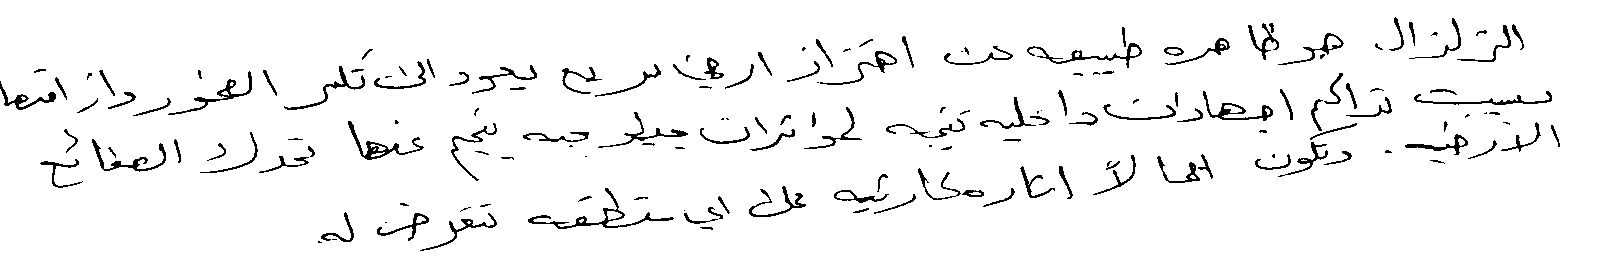 الزلزال هو ظاهره طبيعيه من اهتزاز ارضي سريع يعود الى تكسر الصخور وازاقتها
بسبب تراكم اجهادات داخليه نتيجه لمؤاثرات جيلوجيه ينجم عنها تحرك الصفائح
الارضيه. وتكون اجمالاً اثاره كارثيه على اي منطقه تتعرض له